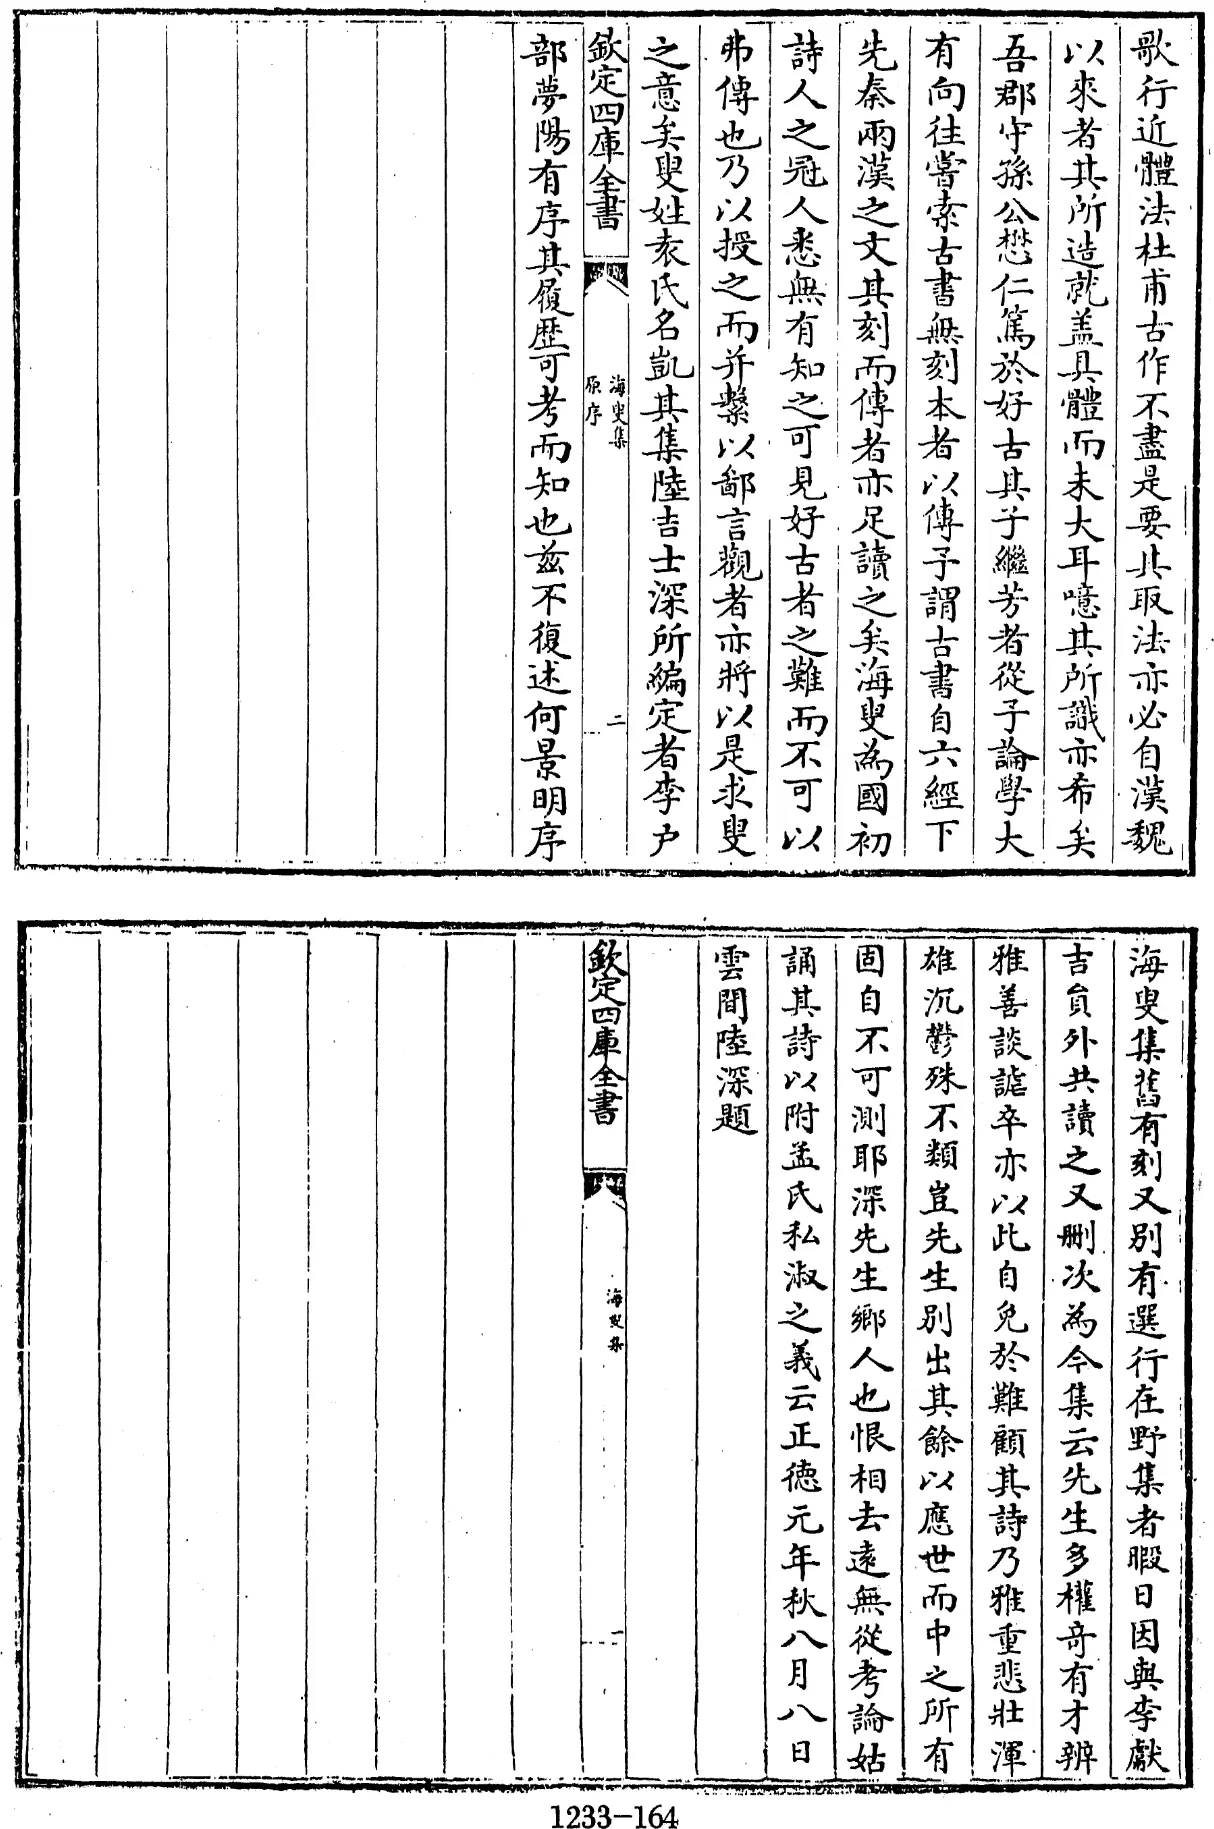 歌行近體法杜甫古作不盡是要其取法亦必自漢魏
以來者其所造就盖具體而未大耳噫其所識亦希矣
吾郡守孫公懋仁篤於好古其子繼芳者從予論學大
有向往嘗索古書無刻本者以傳予謂古書自六經下
先秦兩漢之文其刻而傳者亦足讀之矣海叟為國初
詩人之冠人悉無有知之可見好古者之難而不可以
弗傳也乃以授之而并繫以鄙言觀者亦將以是求叟
之意矣叟姓袁氏名凱其集陸吉士深所編定者李户
欽定四庫全書
海叟集
原序
二
部夢陽有序其履歷可考而知也兹不復述何景明序
海叟集舊有刻又別有選行在野集者暇日因與李獻
吉員外共讀之又刪次為今集云先生多權奇有才辨
雅善談謔卒亦以此自免於難顧其詩乃雅重悲壯渾
雄沉鬱殊不類豈先生別出其餘以應世而中之所有
固自不可測耶深先生鄉人也恨相去遠無從考論姑
誦其詩以附孟氏私淑之義云正德元年秋八月八日
雲間陸深題
欽定四庫全書
海叟集
一
1233-164